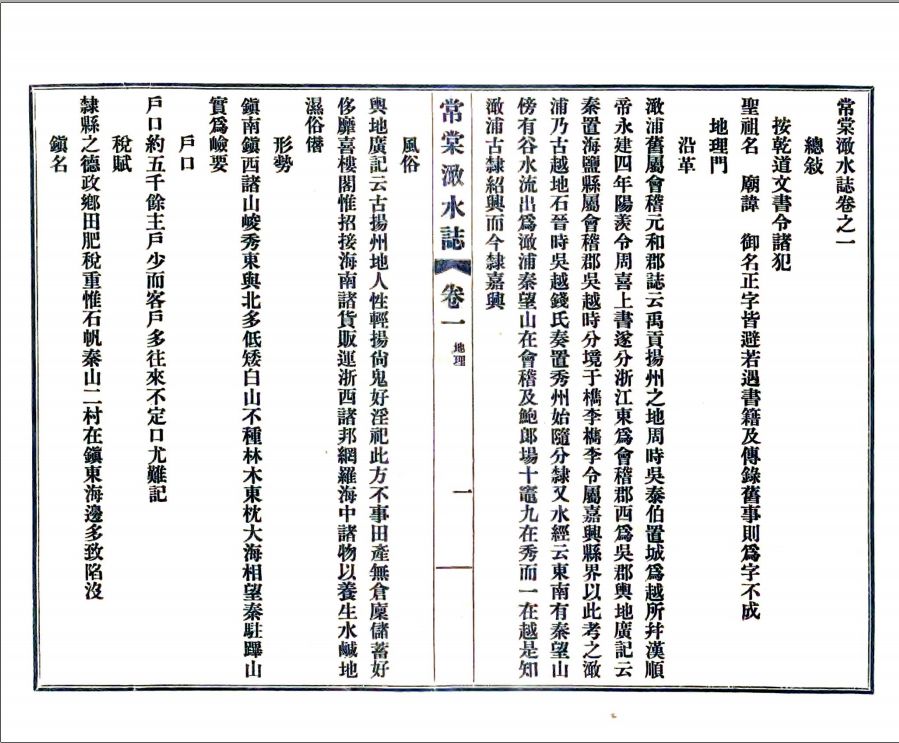 常棠澉水誌卷之一
總敍
按乾道文書令諸犯
聖祖名　廟諱　御名正字皆避若遇書籍及傳錄舊事則爲字不成
地理門
沿革
澉浦舊屬會稽元和郡誌云禹貢揚州之地周時吳泰伯置城爲越所幷漢順
帝永建四年陽羨令周喜上書遂分浙江東爲會稽郡西爲吳郡輿地廣記云
秦置海鹽縣屬會稽郡吳越時分境于檇李檇李今屬嘉興縣界以此考之澉
浦乃古越地石晉時吳越錢氏奏置秀州始隨分隸又水經云東南有秦望山
傍有谷水流出爲澉浦秦望山在會稽及鮑郎場十竈九在秀而一在越是知
澉浦古隸紹興而今隸嘉興
常棠澉水誌
卷一
地理
一
風俗
輿地廣記云古揚州地人性輕揚尙鬼好淫祀此方不事田產無倉廩儲蓄好
侈靡喜樓閣惟招接海南諸貨販運浙西諸邦網羅海中諸物以養生水鹹地
濕俗僭
形勢
鎭南鎭西諸山峻秀東與北多低矮白山不種林木東枕大海相望秦駐蹕山
實爲嶮要
戶口
戶口約五千餘主戶少而客戶多往來不定口尤難記
稅賦
隸縣之德政鄉田肥稅重惟石帆秦山二村在鎭東海邊多致陷沒
鎭名